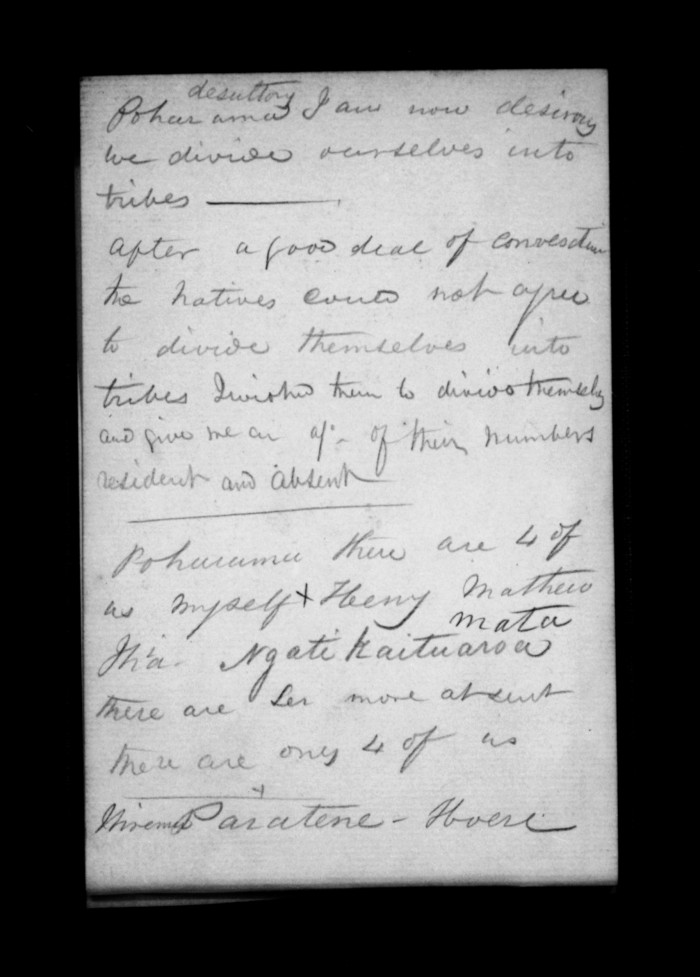 desultory
Poharama I am now desirous
we divide ourselves into
tribes ———
After a good deal of conversation
the Natives could not agree
to divide themselves into
tribes I wished them to divide themselves
and give me an a/c of their numbers
resident and absent
Poharama there are 4 of
us myself + Henry Mathew
mata
Ihia. Ngatikaituaroa
there are ten more absent
there are only 4 of us
+
Wiremu Paratene - Hoere